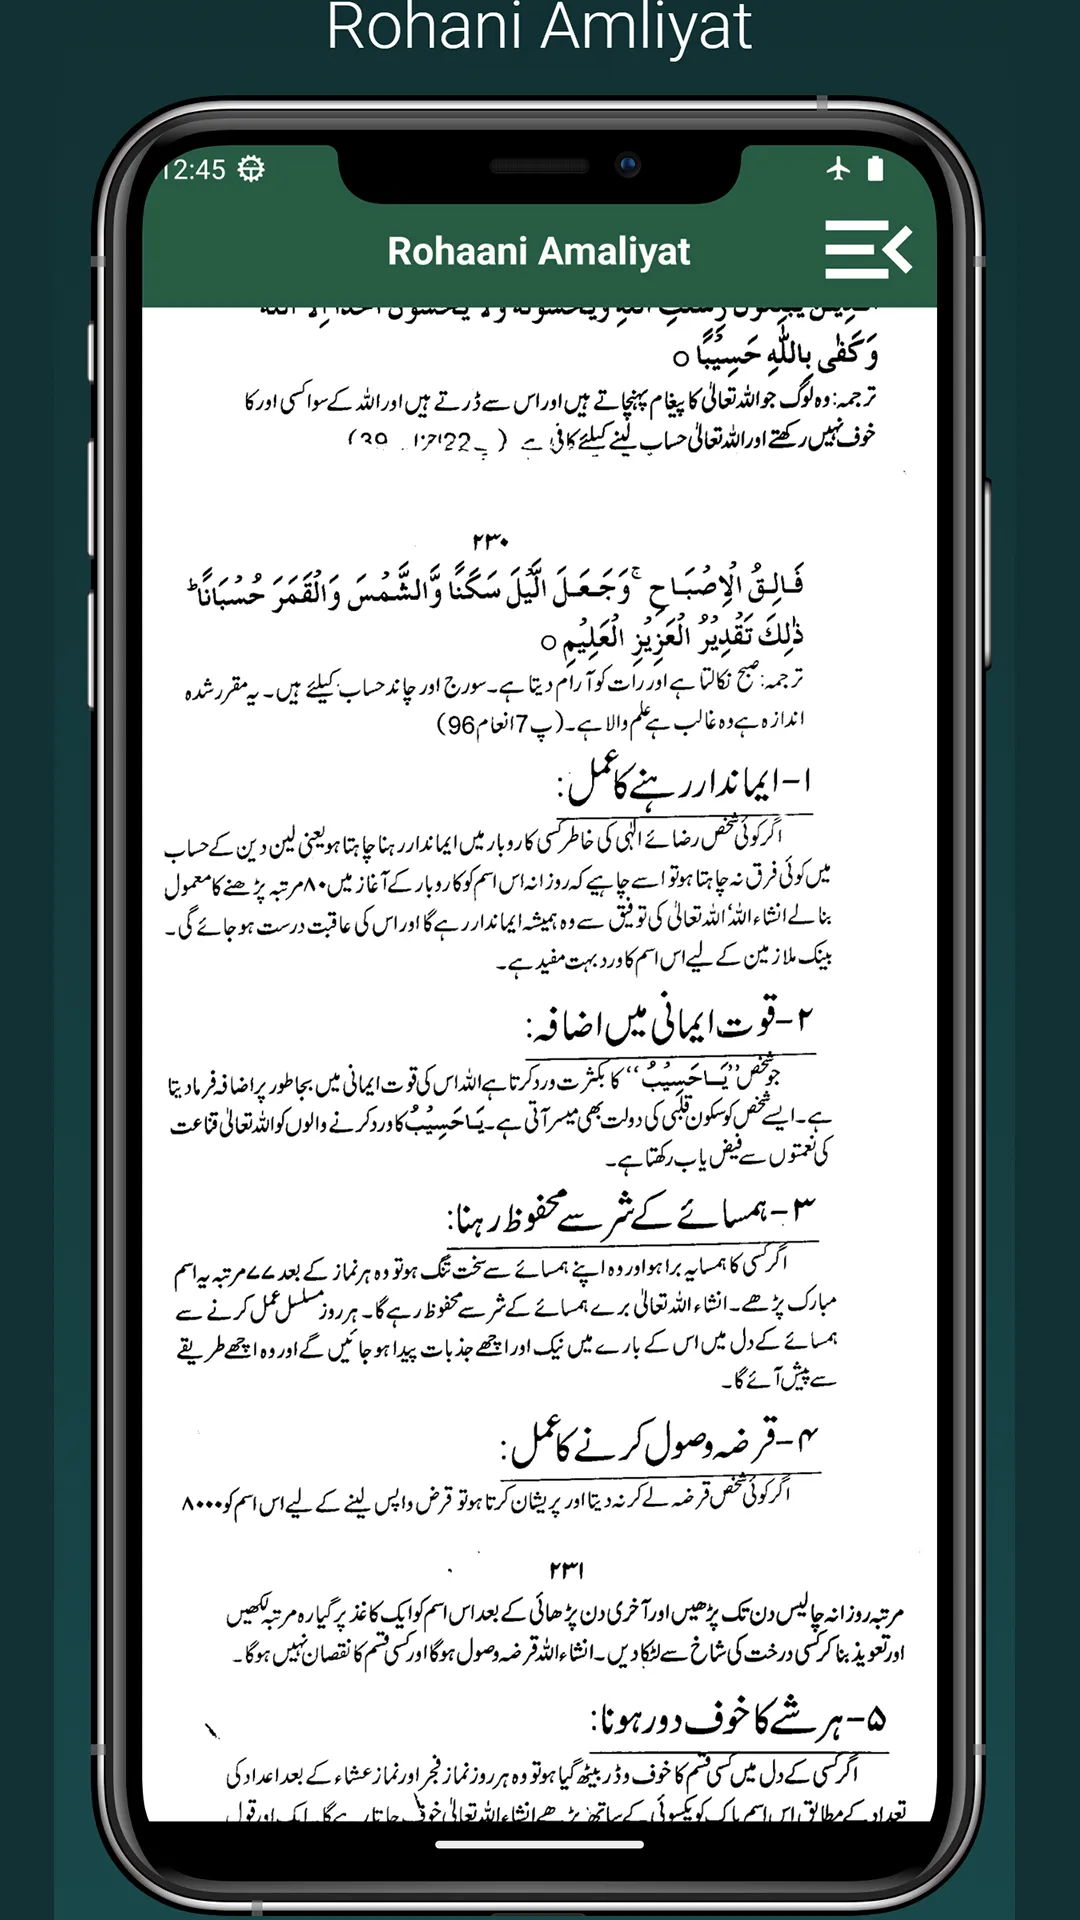 Rohani Amliyat
12:45
Rohaani Amaliyat
وَكَفٰى بِاللّٰهِ حَسِيْبًا ○
ترجمہ: وہ لوگ جو اللہ تعالیٰ کا پیغام پہنچاتے ہیں اور اس سے ڈرتے ہیں اور اللہ کے سوا کسی اور کا
خوف نہیں رکھتے اور اللہ تعالیٰ حساب لینے کیلئے کافی ہے
۲۳۰
فَالِقُ الْاِصْبَاحِ ۚ وَجَعَلَ الَّيْلَ سَكَنًا وَّالشَّمْسَ وَالْقَمَرَ حُسْبَانًا ؕ
ذٰلِكَ تَقْدِيْرُ الْعَزِيْزِ الْعَلِيْمِ ○
ترجمہ: صبح نکالتا ہے اور رات کو آرام دیتا ہے۔ سورج اور چاند حساب کیلئے ہیں۔ یہ مقرر شدہ
اندازہ ہے وہ غالب ہے علم والا ہے۔ (پ7 انعام 96)
۱- ایماندار رہنے کا عمل:
اگر کوئی شخص رضائے الٰہی کی خاطر کسی کاروبار میں ایماندار رہنا چاہتا ہو یعنی لین دین کے حساب
میں کوئی فرق نہ چاہتا ہو تو اسے چاہیے کہ روزانہ اس اسم کو کاروبار کے آغاز میں ۸۰ مرتبہ پڑھنے کا معمول
بنا لے انشاء اللہ‘ اللہ تعالیٰ کی توفیق سے وہ ہمیشہ ایماندار رہے گا اور اس کی عاقبت درست ہو جائے گی۔
بینک ملازمین کے لیے اس اسم کا ورد بہت مفید ہے۔
۲- قوت ایمانی میں اضافہ:
جو شخص ’’يَا حَسِيْبُ‘‘ کا بکثرت ورد کرتا ہے اللہ اس کی قوت ایمانی میں بجا طور پر اضافہ فرما دیتا
ہے۔ ایسے شخص کو سکون قلبی کی دولت بھی میسر آتی ہے۔ يَا حَسِيْبُ کا ورد کرنے والوں کو اللہ تعالیٰ قناعت
کی نعمتوں سے فیض یاب رکھتا ہے۔
۳- ہمسائے کے شر سے محفوظ رہنا:
اگر کسی کا ہمسایہ برا ہو اور وہ اپنے ہمسائے سے سخت تنگ ہو تو وہ ہر نماز کے بعد ۷۷ مرتبہ یہ اسم
مبارک پڑھے۔ انشاء اللہ تعالیٰ برے ہمسائے کے شر سے محفوظ رہے گا۔ ہر روز مسلسل عمل کرنے سے
ہمسائے کے دل میں اس کے بارے میں نیک اور اچھے جذبات پیدا ہو جائیں گے اور وہ اچھے طریقے
سے پیش آئے گا۔
۴- قرضہ وصول کرنے کا عمل:
اگر کوئی شخص قرضہ لے کر نہ دیتا اور پریشان کرتا ہو تو قرض واپس لینے کے لیے اس اسم کو ۸۰۰۰
۲۳۱
مرتبہ روزانہ چالیس دن تک پڑھیں اور آخری دن پڑھائی کے بعد اس اسم کو ایک کاغذ پر گیارہ مرتبہ لکھیں
اور تعویذ بنا کر کسی درخت کی شاخ سے لٹکا دیں۔ انشاء اللہ قرضہ وصول ہوگا اور کسی قسم کا نقصان نہیں ہوگا۔
۵- ہر شے کا خوف دور ہونا:
اگر کسی کے دل میں کسی قسم کا خوف و ڈر بیٹھ گیا ہو تو وہ ہر روز نماز فجر اور نماز عشاء کے بعد اعداد کی
تعداد کے مطابق اس اسم پاک کو یکسوئی کے ساتھ پڑھے انشاء اللہ تعالیٰ خوف جاتا رہے گا۔ ایک اور قول